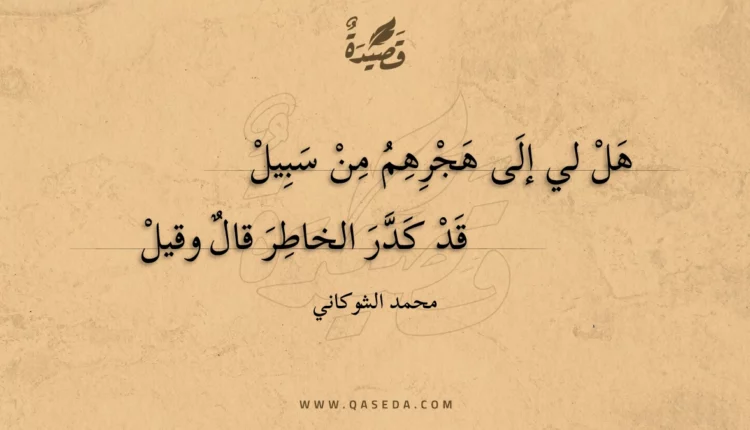 قَصِيْدَةٌ
هَلْ لي إلَى هَجْرِهِمُ مِنْ سَبِيلْ
قَدْ كَدَّرَ الخاطِرَ قالٌ وقيلْ
محمد الشوكاني
WWW.QASEDA.COM